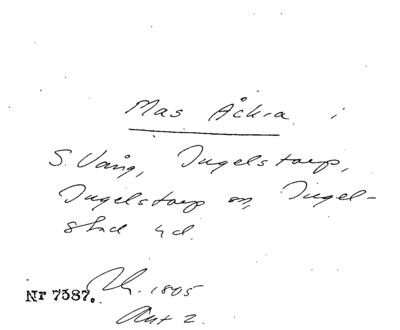 Mas Åckra i
S. Vång, Ingelstorp,
Ingelstorp sn, Ingel-
stad hd.
Nr 7587. 1805
Akt 2.